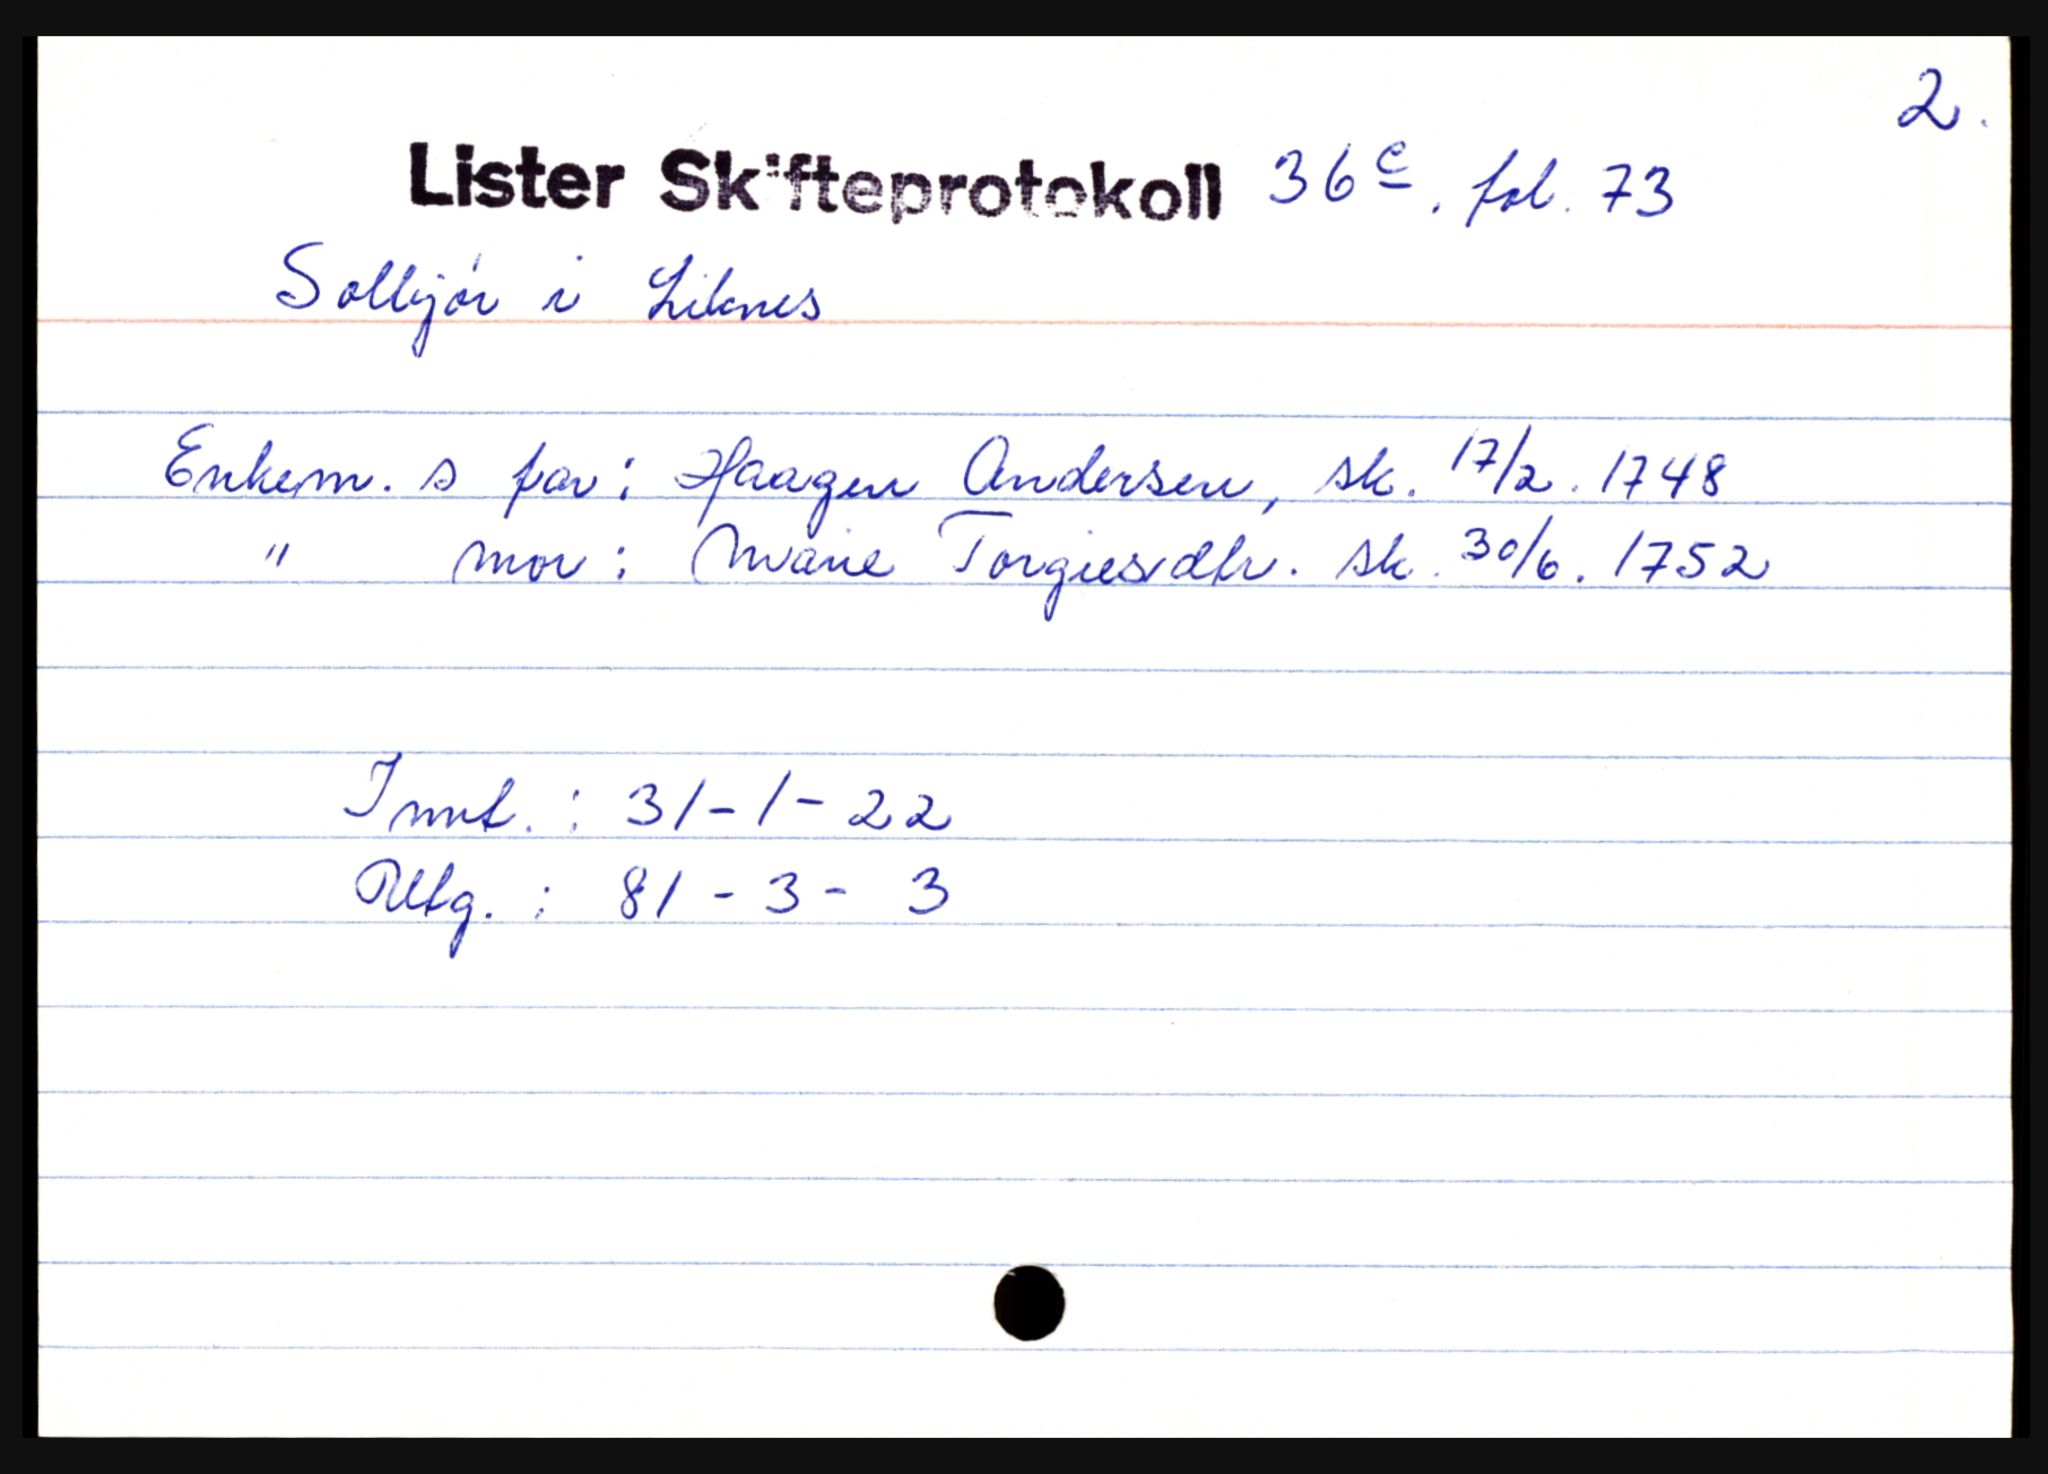 2.
Lister Skifteprotokoll 36c. fol. 73
Solbjør i Liknes
Enkem. s far: Haagen Andersen, sk. 17/2. 1748
" mor: Marie Torgiesdtr. sk. 30/6. 1752
Innt. : 31-1-22
Utg. : 81-3-3